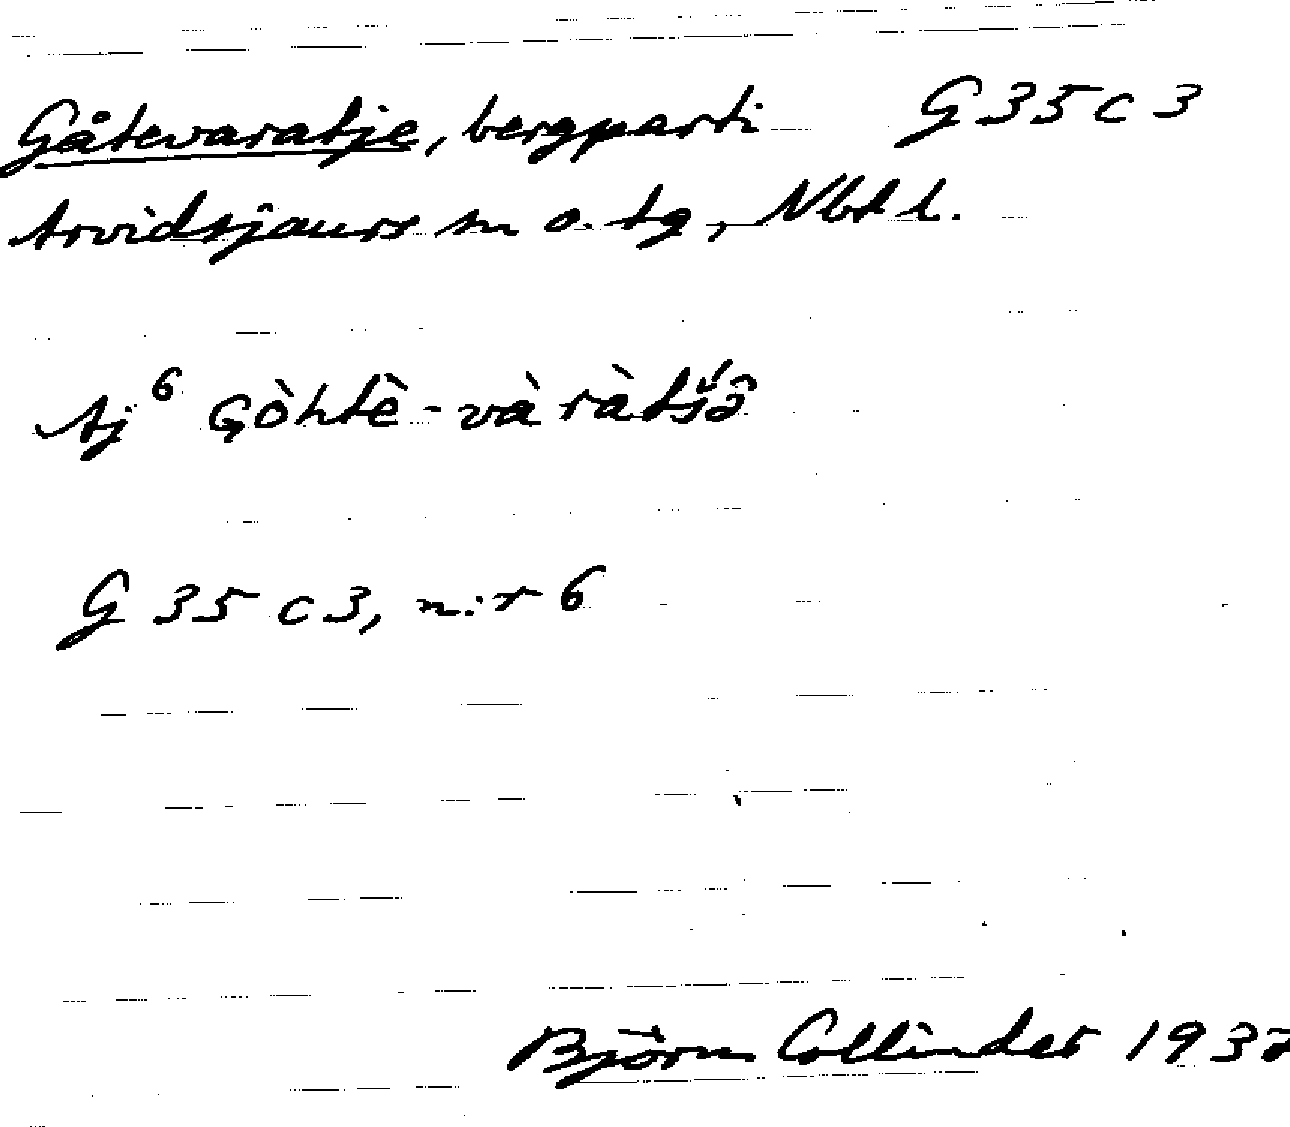 Gåtevaratje, bergparti G 35 c 3
Arvidsjaurs sn o. tg, Nbt l.
Aj⁶ Gòhtè-vàràtš́ə̑
G 35 c 3, n:r 6
Björn Collinder 1932